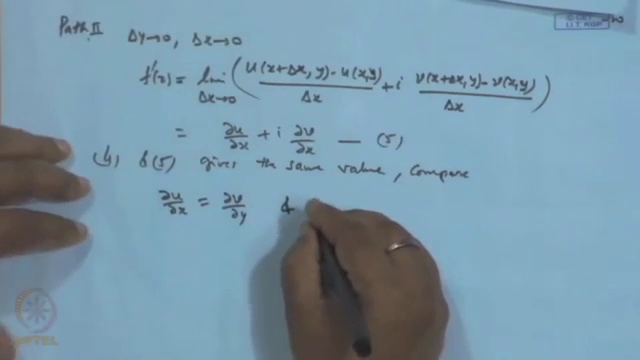 Path II Δy→0, Δx→0
f'(z) = lim Δx→0 ( u(x+Δx, y) - u(x,y) / Δx + i v(x+Δx, y) - v(x,y) / Δx )
= ∂u/∂x + i ∂v/∂x — (5)
(4) & (5) gives the same value, compare
∂u/∂x = ∂v/∂y &
© CET
I.I.T. KGP
NPTEL